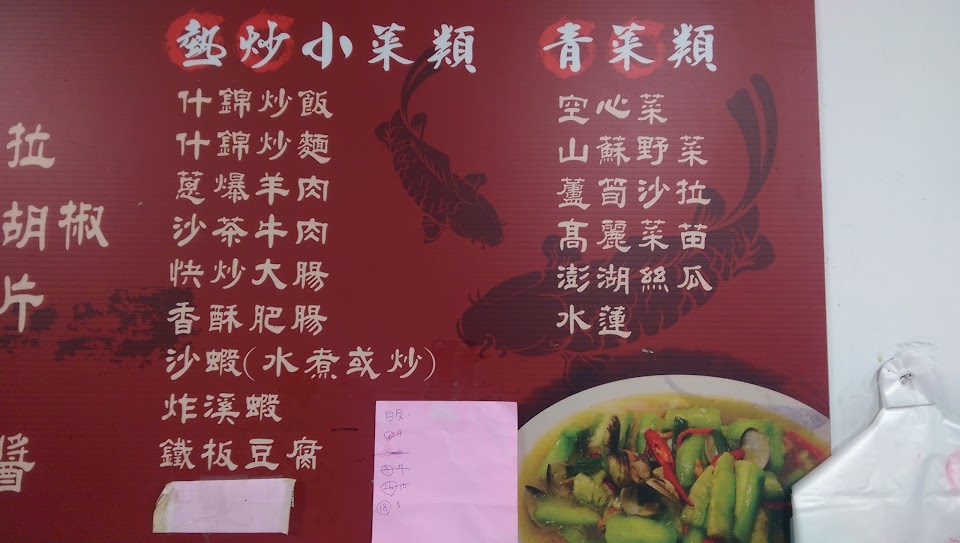 熱炒小菜類
什錦炒飯
什錦炒麵
蔥爆羊肉
沙茶牛肉
快炒大腸
香酥肥腸
沙蝦(水煮或炒)
炸溪蝦
鐵板豆腐
青菜類
空心菜
山蘇野菜
蘆筍沙拉
高麗菜苗
澎湖絲瓜
水蓮
拉
胡椒
片
醬
白飯